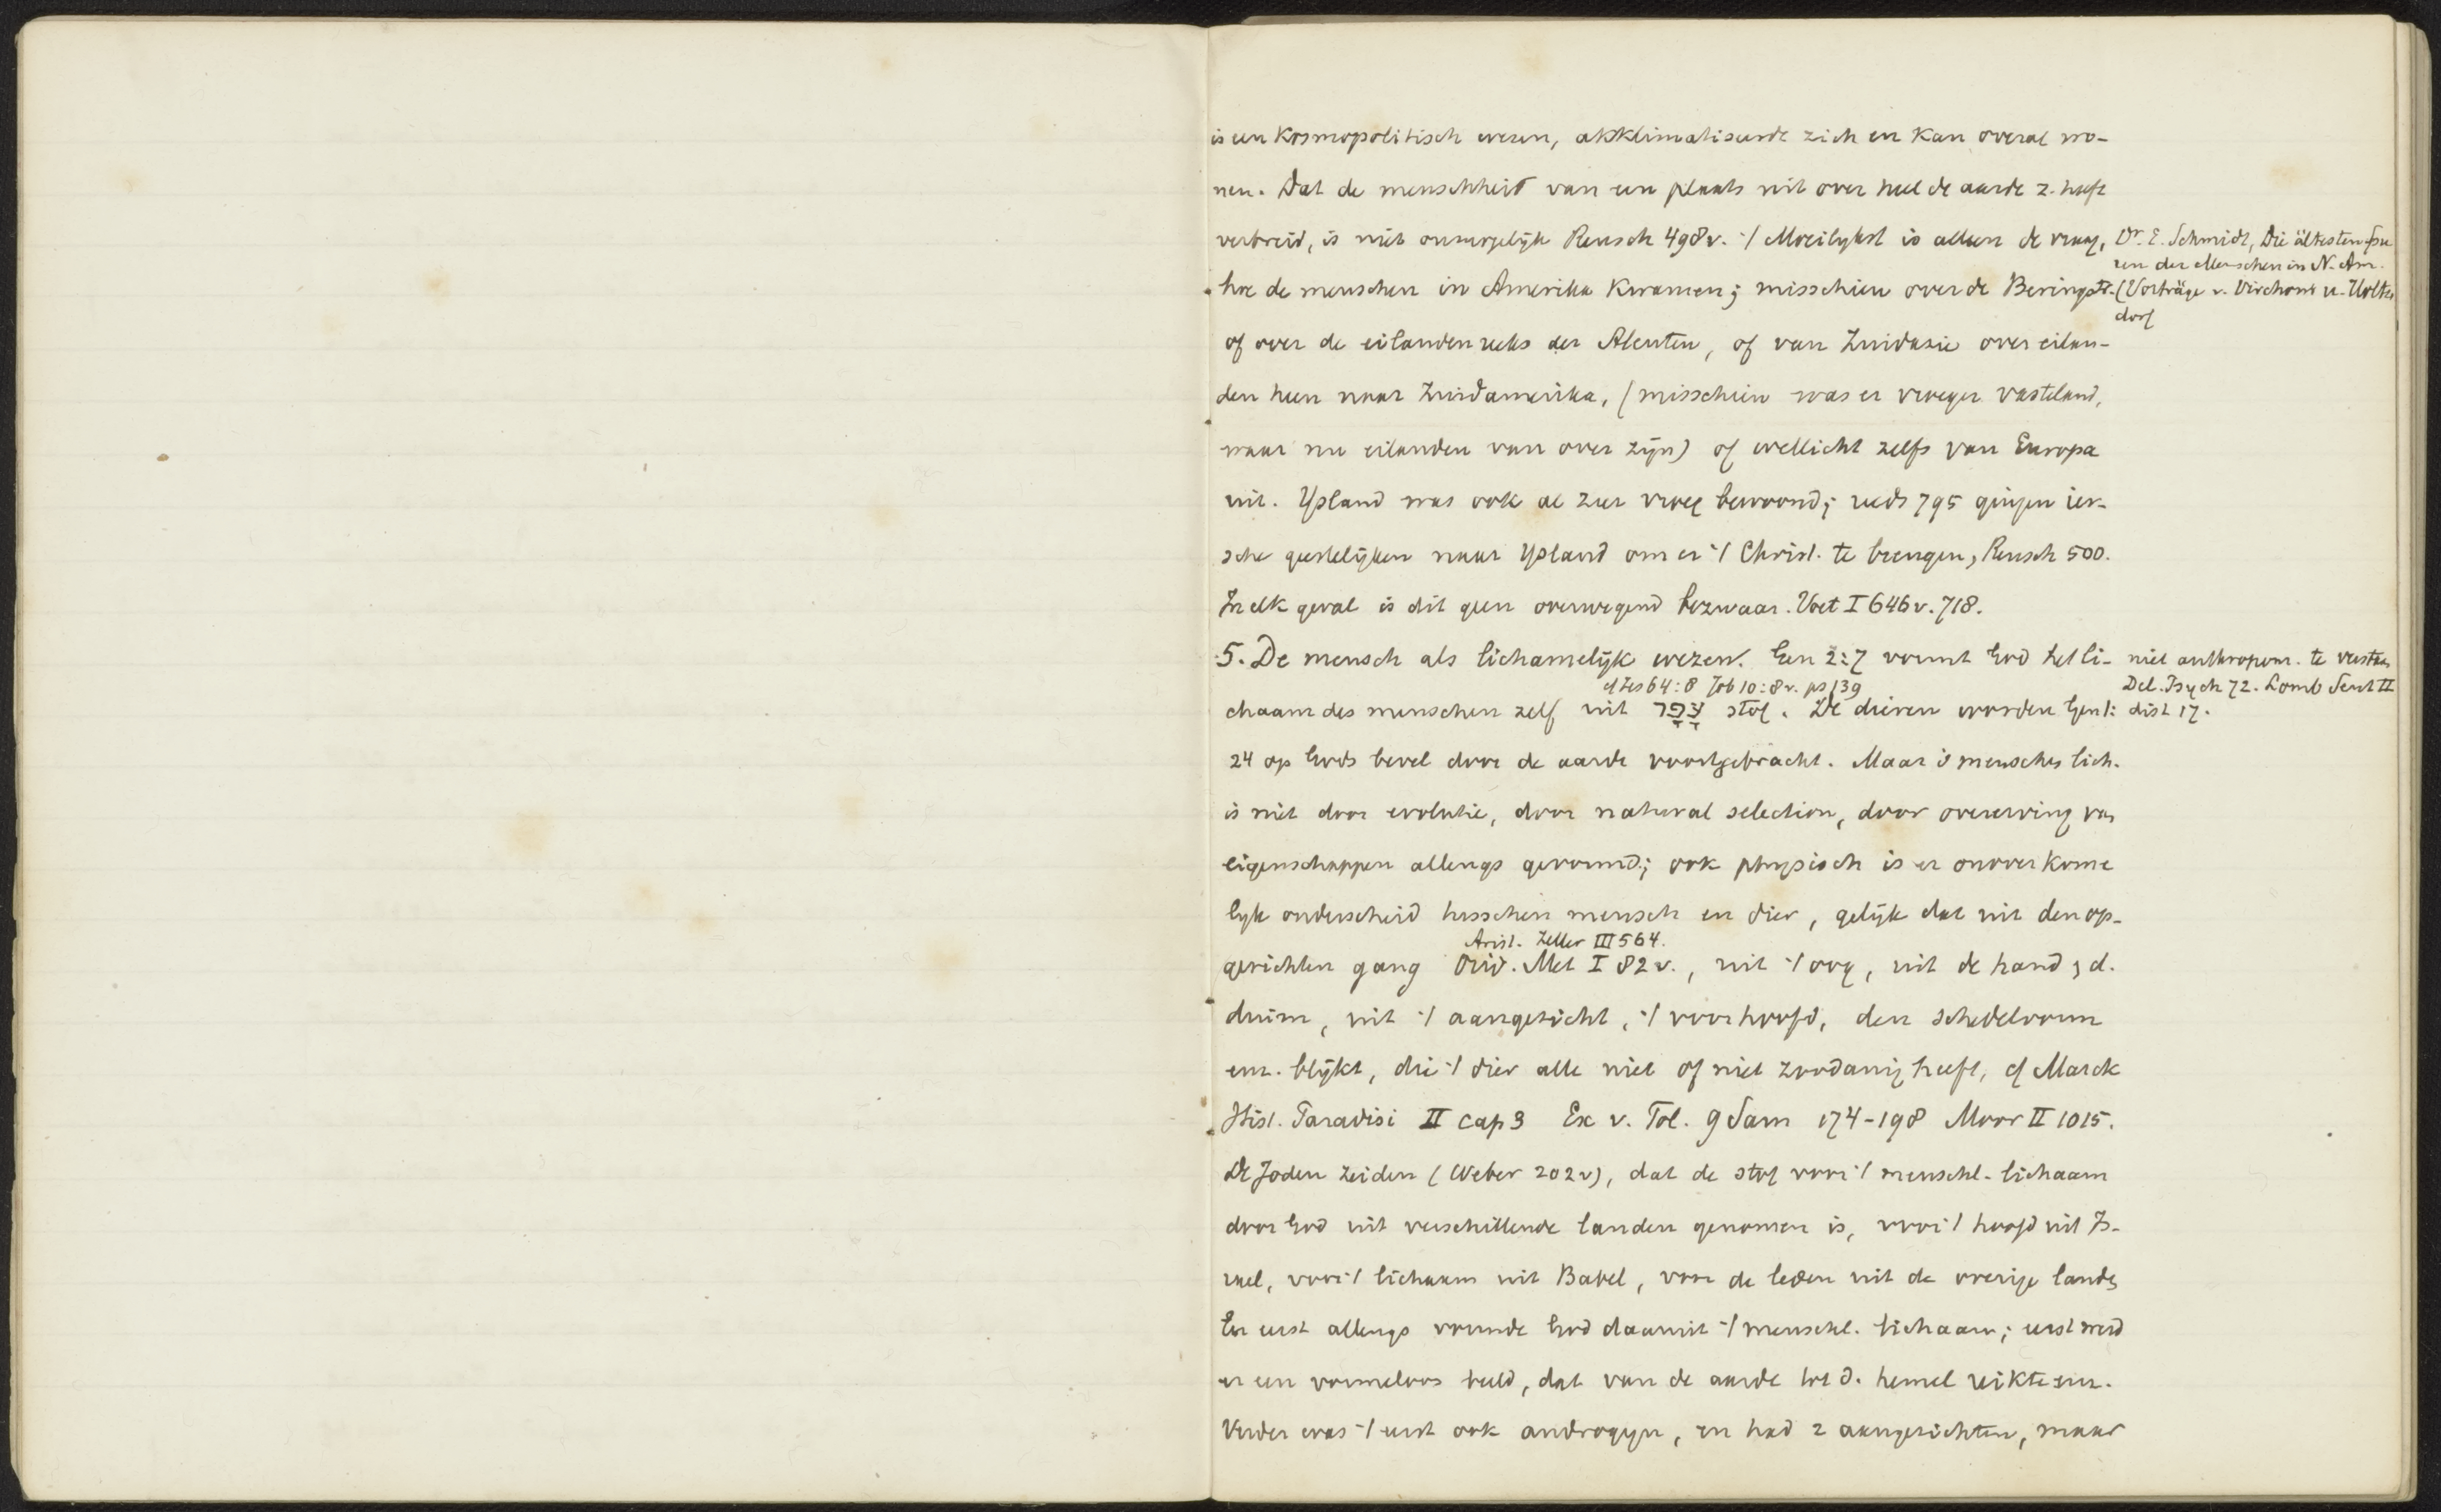 is een kosmopolitisch wezen, akklimatiseerde zich en kan overal wo-
nen. Dat de menschheid van een plaats uit over heel de aarde z. heeft
verbreid, is niet onmogelijk Reusch 498v. 't Moeilykst is alleen de vraag,
Dr. E. Schmidt, Die ältesten Spu
ren der Menschen in N. Am.
hoe de menschen in Amerika kwamen; misschien over de Beringstr.
(Vorträge v. Virchow u. Holtzen
dorf
of over de eilandenreeks der Aleuten, of van Zuidazie over eilan-
den heen naar Zuidamerika, (misschien was er vroeger vasteland,
waar nu eilanden van over zijn) of wellicht zelfs van Europa
uit. Ysland was ook al zeer vroeg bewoond; reeds 795 gingen ier-
sche geestelijken naar Ysland om er 't Christ. te brengen, Reusch 500.
In elk geval is dit geen overwegend bezwaar. Voet I 646v. 718.
5. De mensch als lichamelijk wezen. Gen 2:7 vormt God het li-
niet anthropom. te verstaan
Del. Psych 72. Lomb Sent II
dist 17.
cf Jes 64:8 Job 10:8v. ps 139
chaam des menschen zelf uit עָפָר stof. De dieren worden Gen 1:
24 op Gods bevel door de aarde voortgebracht. Maar 's menschen lich.
is niet door evolutie, door natural selection, door overerving van
eigenschappen allengs gevormd; ook physisch is er onoverkome
lyk onderscheid tusschen mensch en dier, gelijk dat uit den op-
Arist. Zeller III 564.
gerichten gang Ovid. Met I 82v., uit 't oog, uit de hand, d.
duim, uit 't aangezicht, 't voorhoofd, den schedelvorm
enz. blijkt, die 't dier alle niet of niet zoodanig heeft, cf Marck
Hist. Paradisi II cap 3 Ex v. Tol. 9 Sam 174-198 Moor II 1015.
De Joden zeiden (Weber 202v), dat de stof voor 't menschl. lichaam
door God uit verschillende landen genomen is, voor 't hoofd uit Is-
rael, voor 't lichaam uit Babel, voor de leden uit de overige landen
En eerst allengs vormde God daaruit 't menschl. lichaam; eerst werd
er een vormeloos beeld, dat van de aarde tot d. hemel reikte enz.
Verder was 't eerst ook androgyn, en had 2 aangezichten, maar